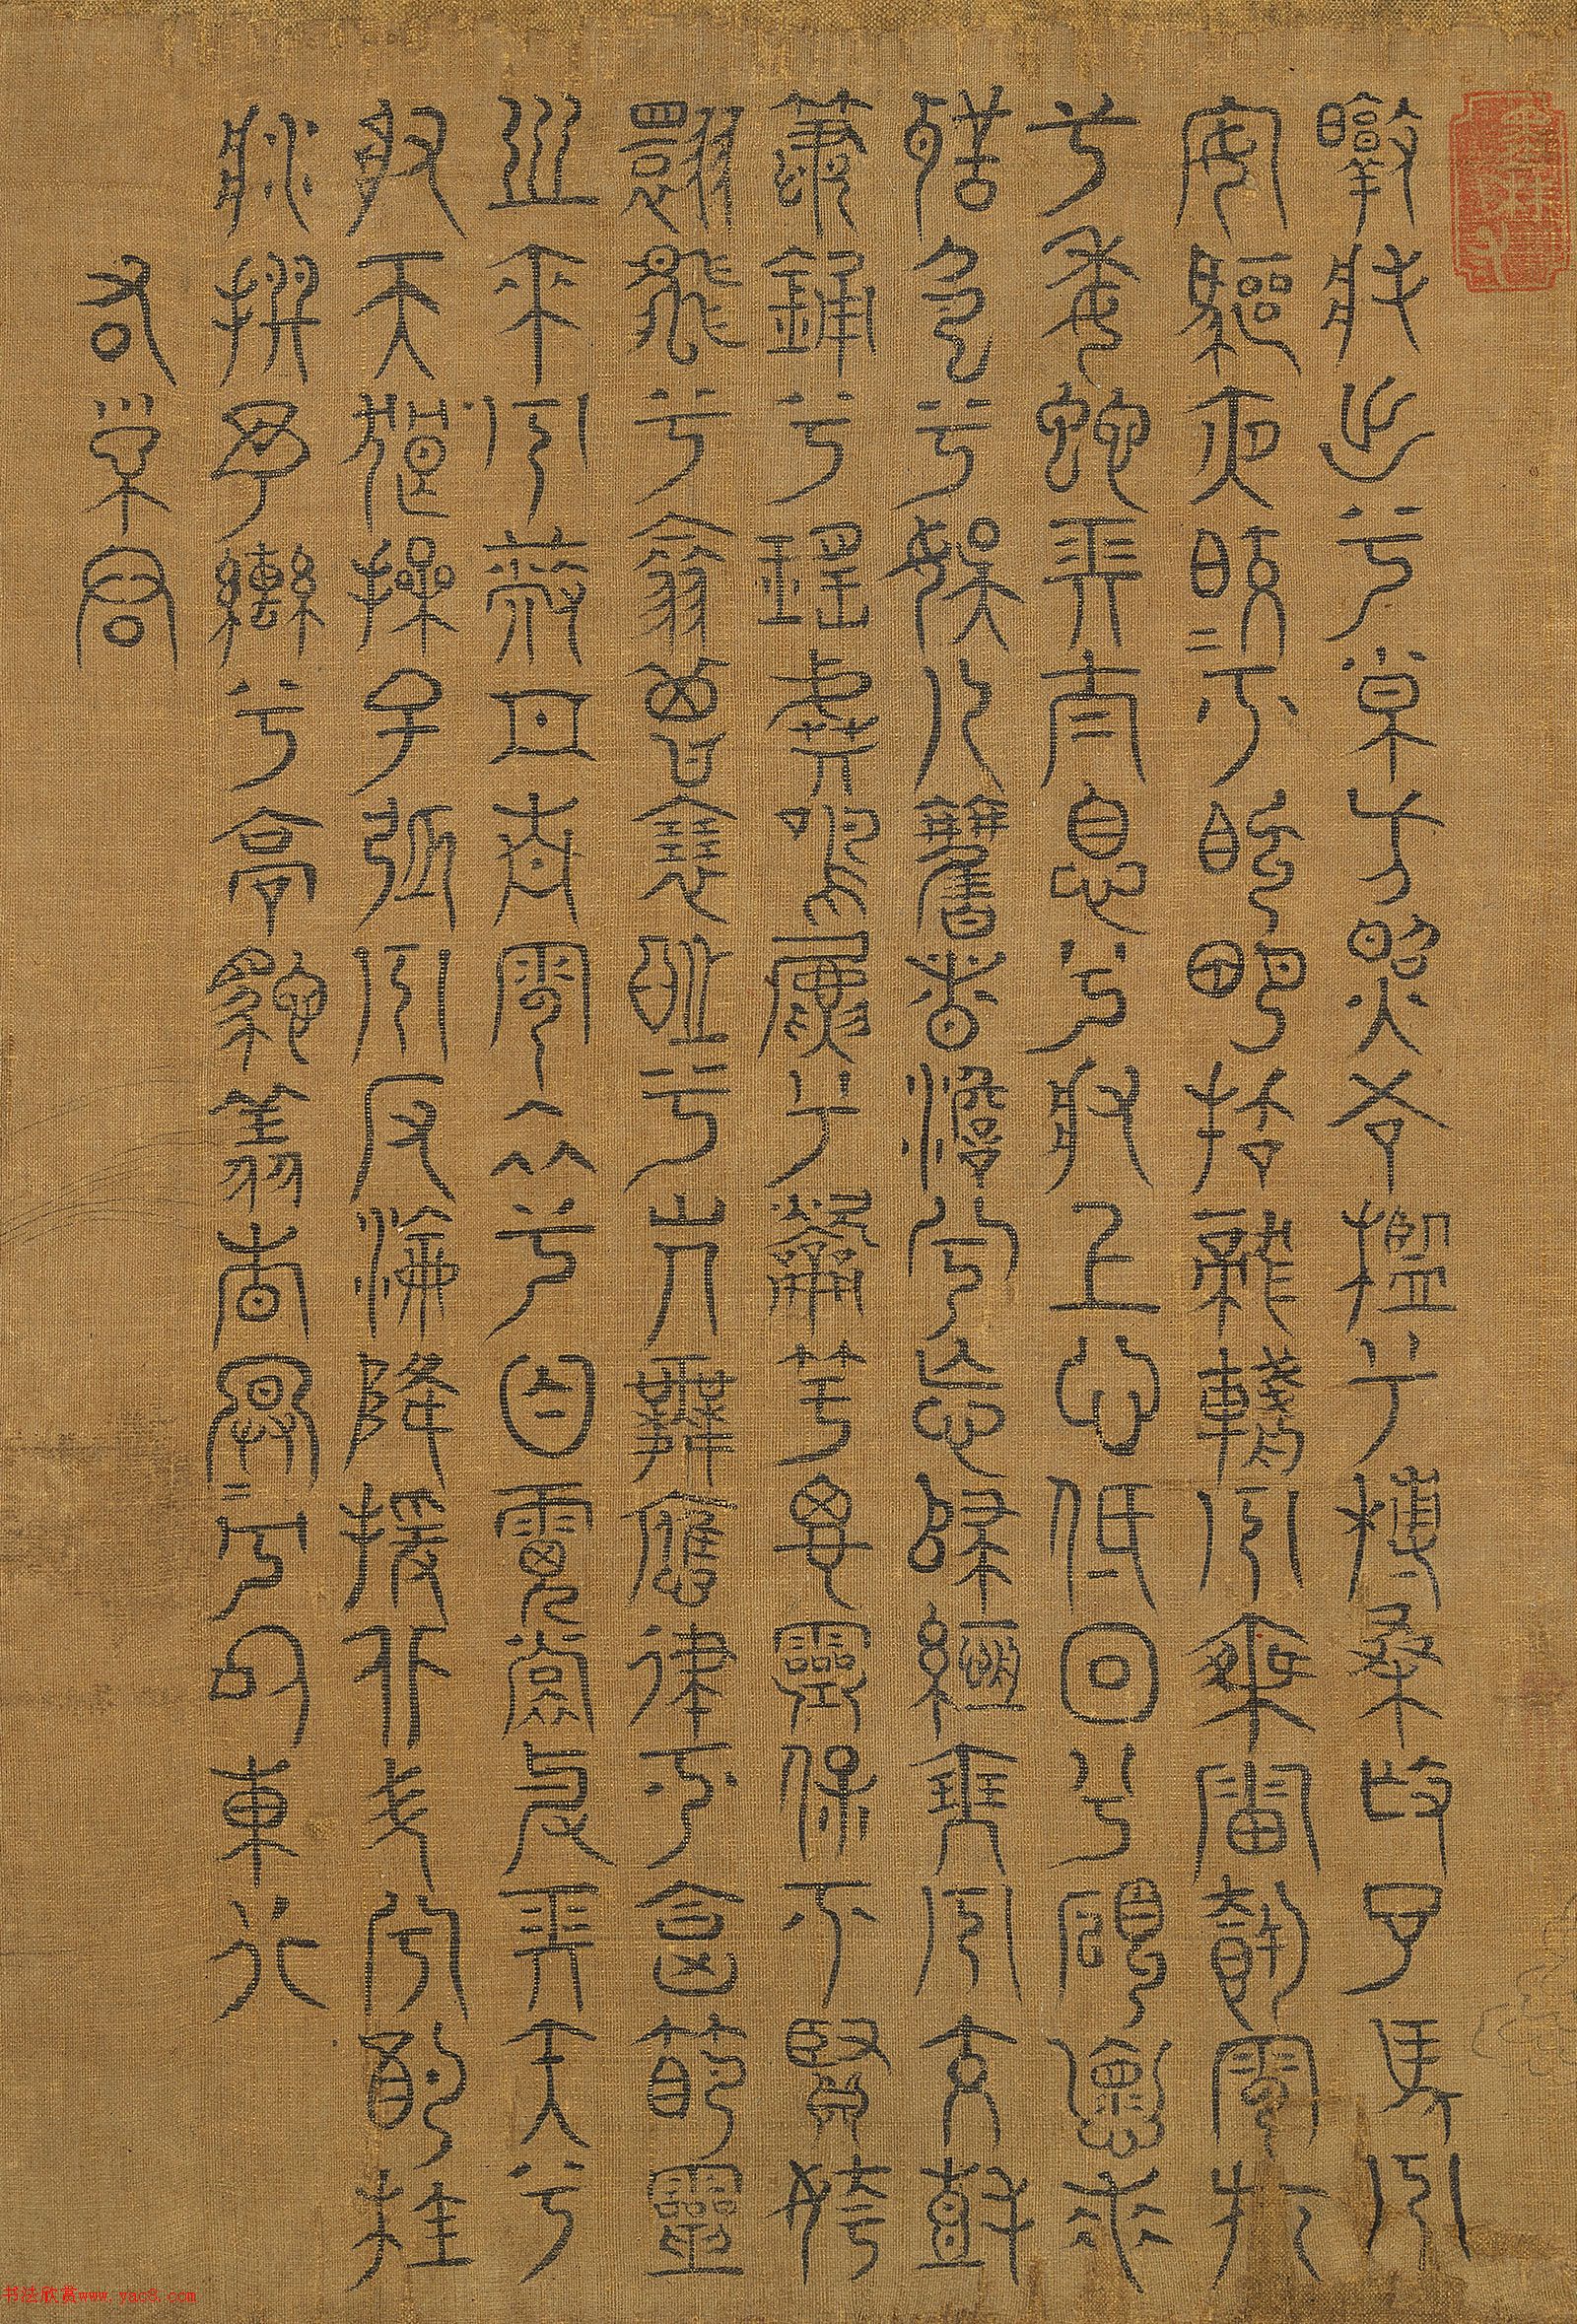 暾將出兮東方照吾檻兮扶桑撫余馬兮
安驅夜晈〻兮既明駕龍輈兮乘雷載雲旗
兮委蛇長太息兮將上心低回兮顧懷羌
聲色兮娛人觀者憺兮忘歸緪瑟兮交鼓
簫鍾兮瑤簴鳴篪兮吹竽思靈保兮賢姱
翾飛兮翠曾展詩兮會舞應律兮合節靈
之來兮蔽日青雲衣兮白霓裳舉長矢兮
射天狼操余弧兮反淪降援北斗兮酌桂
漿撰余轡兮高駝翔杳冥〻兮以東行
右東君
书法欣赏www.yac8.com